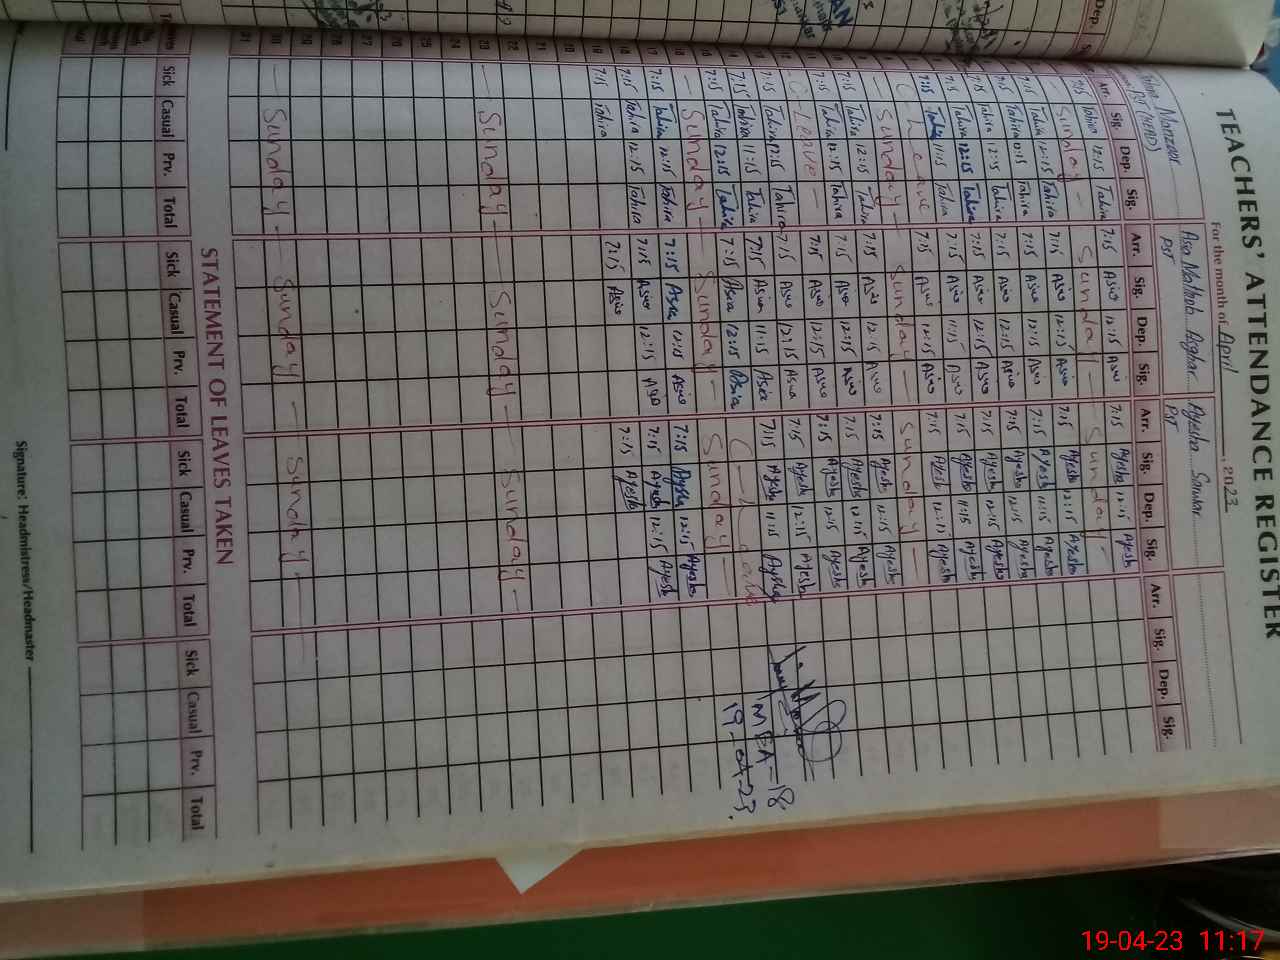 TEACHERS' ATTENDANCE REGISTER
For the month of April, 2023
Asia Asghar Ayesha
PST PST
Arr. Sig. Dep. Sig. Arr. Sig. Dep. Sig. Arr. Sig. Dep. Sig. Arr. Sig. Dep. Sig.
7:15 Tahira 12:15 Tahira 7:15 Asia 12:15 Asia 7:15 Ayesha 12:15 Ayesha
— Sunday — Sunday — Sunday —
7:15 Tahira 12:15 Tahira 7:15 Asia 12:15 Asia 7:15 Ayesha 12:15 Ayesha
7:15 Tahira 12:15 Tahira 7:15 Asia 12:15 Asia 7:15 Ayesha 11:15 Ayesha
7:15 Tahira 12:15 Tahira 7:15 Asia 12:15 Asia 7:15 Ayesha 12:15 Ayesha
7:15 Tahira 12:15 Tahira 7:15 Asia 12:15 Asia 7:15 Ayesha 12:15 Ayesha
7:15 Tahira 11:15 Tahira 7:15 Asia 11:15 Asia 7:15 Ayesha 11:15 Ayesha
C Leave 7:15 Asia 12:15 Asia 7:15 Ayesha 12:15 Ayesha
— Sunday — Sunday — Sunday —
7:15 Tahira 12:15 Tahira 7:15 Asia 12:15 Asia 7:15 Ayesha 12:15 Ayesha
7:15 Tahira 12:15 Tahira 7:15 Asia 12:15 Asia 7:15 Ayesha 12:15 Ayesha
C-Leave — 7:15 Asia 12:15 Asia 7:15 Ayesha 12:15 Ayesha
7:15 Tahira 12:15 Tahira 7:15 Asia 12:15 Asia 7:15 Ayesha 12:15 Ayesha
7:15 Tahira 11:15 Tahira 7:15 Asia 11:15 Asia 7:15 Ayesha 11:15 Ayesha
7:15 Tahira 12:15 Tahira 7:15 Asia 12:15 Asia C-Leave
— Sunday — Sunday — Sunday —
7:15 Tahira 12:15 Tahira 7:15 Asia 12:15 Asia 7:15 Ayesha 12:15 Ayesha
7:15 Tahira 12:15 Tahira 7:15 Asia 12:15 Asia 7:15 Ayesha 12:15 Ayesha
7:15 Tahira 7:15 Asia 7:15 Ayesha
20
21
22
23 — Sunday — Sunday — Sunday —
24
25
26
27
28
29
30 — Sunday — Sunday — Sunday —
31
MEA-18
19-04-23.
STATEMENT OF LEAVES TAKEN
Sick Casual Prv. Total Sick Casual Prv. Total Sick Casual Prv. Total Sick Casual Prv. Total
Signature: Headmistress/Headmaster
19-04-23 11:17